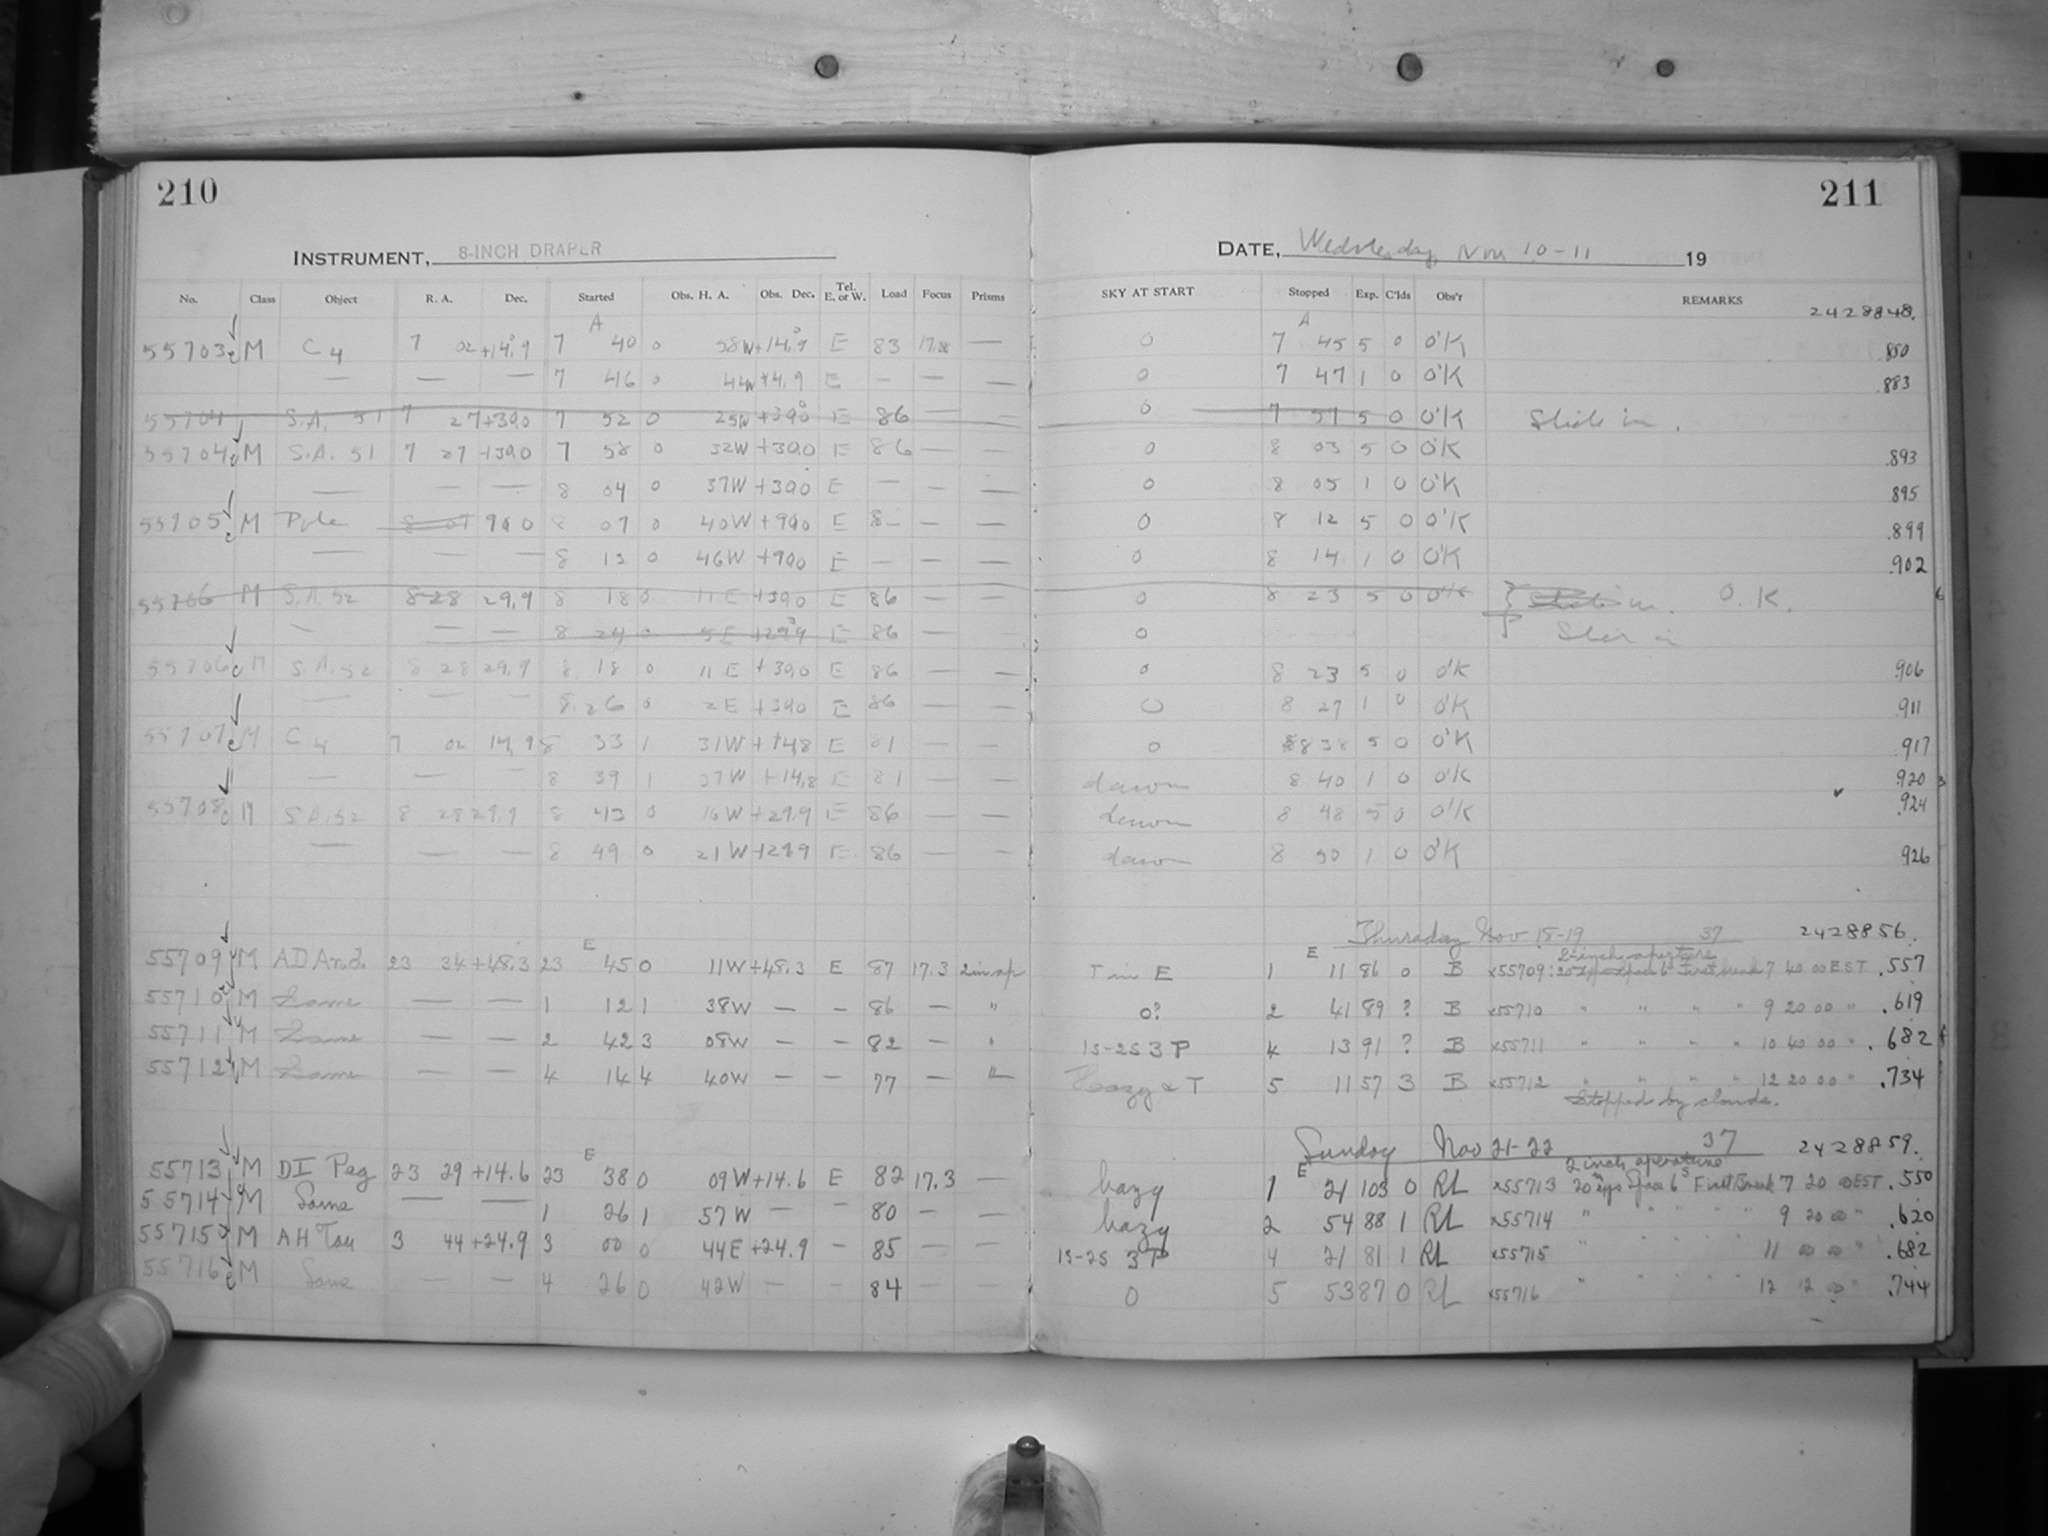 210
INSTRUMENT, 8-INCH DRAPER
No. Class Object R. A. Dec. Started Obs. H. A. Obs. Dec. Tel. E. or W. Load Focus Prisms
A
55703 M C 4 7 02 +14.9 7 40 0 58W +14.9 E 83 —
— — — 7 46 0 44W +14.9 E — — —
55704 S.A. 51 7 27 +30.0 7 52 0 25W +30.0 E 86 — —
55704 M S.A. 51 7 27 +30.0 7 58 0 32W +30.0 E 86 — —
— — — 8 04 0 37W +30.0 E — — —
55705 M Pole 8 07 90.0 8 07 0 40W +90.0 E — —
— — — 8 13 0 46W +90.0 E — — —
55706 M S.A. 52 8 28 29.9 8 18 0 11 E +30.0 E 86 — —
— — — 8 24 0 5 E +29.9 E 86 — —
55706 M S.A. 52 8 28 29.9 8 18 0 11 E +30.0 E 86 — —
— — — 8 26 0 2 E +30.0 E 86 — —
55707 M C 4 7 02 14.9 8 33 1 31W +14.8 E 81 — —
— — — 8 39 1 37W +14.8 E 81 — —
55708 M S.A. 52 8 28 29.9 8 43 0 16W +29.9 E 86 — —
— — — 8 49 0 21W +29.9 E 86 — —
E
55709 M AD And. 23 34 +48.3 23 45 0 11W +48.3 E 87 17.3 2 in ap
55710 M Same — — 1 12 1 38W — — 86 — "
55711 M Same — — 2 42 3 08W — — 82 — "
55712 M Same — — 4 14 4 40W — — 77 — "
E
55713 M DI Peg 23 29 +14.6 23 38 0 09W +14.6 E 82 17.3 —
55714 M Same — — 1 26 1 57W — — 80 — —
55715 M AH Tau 3 44 +24.9 3 00 0 44E +24.9 — 85 — —
55716 M Same — — 4 26 0 42W — — 84 — —
211
DATE, Wednesday Nov 10-11 19
SKY AT START Stopped Exp. C'lds Obs'r REMARKS
2428848.
A
0 7 45 5 0 O'K .850
0 7 47 1 0 O'K .883
0 7 57 5 0 O'K Slide in.
0 8 03 5 0 O'K .893
0 8 05 1 0 O'K .895
0 8 12 5 0 O'K .899
0 8 14 1 0 O'K .902
0 8 23 5 0 O'K O. K.
0 Slide in
0 8 23 5 0 O'K .906
0 8 27 1 0 O'K .911
0 8 38 5 0 O'K .917
dawn 8 40 1 0 O'K .920
dawn 8 48 5 0 O'K .924
dawn 8 50 1 0 O'K .926
Thursday Nov 18-19 37 2428856.
2-inch aperture
E
T in E 1 11 86 0 B x55709: 20 exps space 6s First break 7 40 00 EST .557
0? 2 41 89 ? B x55710 " " " " 9 20 00 " .619
1s-2s 3 P 4 13 91 ? B x55711 " " " " 10 40 00 " .682
Hazy & T 5 11 57 3 B x55712 " " " " 12 20 00 " .734
Stopped by clouds.
Sunday Nov 21-22 37 2428859.
2 inch aperture
E
hazy 1 21 103 0 RL x55713 20 exps space 6s First Break 7 20 00 EST .550
hazy 2 54 88 1 RL x55714 " " " " " 9 20 00 " .620
1s-2s 3 P 4 21 81 1 RL x55715 " " " " " 11 00 00 " .682
0 5 53 87 0 RL x55716 " " " " " 12 12 00 " .744